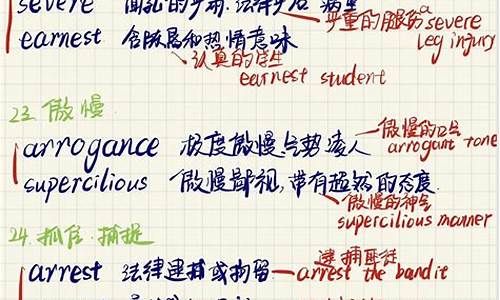 severe
严重的腿伤 a severe leg injury
earnest 含庄严和热情意味
认真的学生
earnest student
23. 傲慢
arrogance 极度傲慢、气势凌人
傲慢的口气
arrogant tone
supercilious 傲慢鄙视,带有超然的态度.
傲慢的神气
supercilious manner
24. 抓住. 捕捉
arrest 法律逮捕或拘留
逮捕匪徒
arrest the bandit